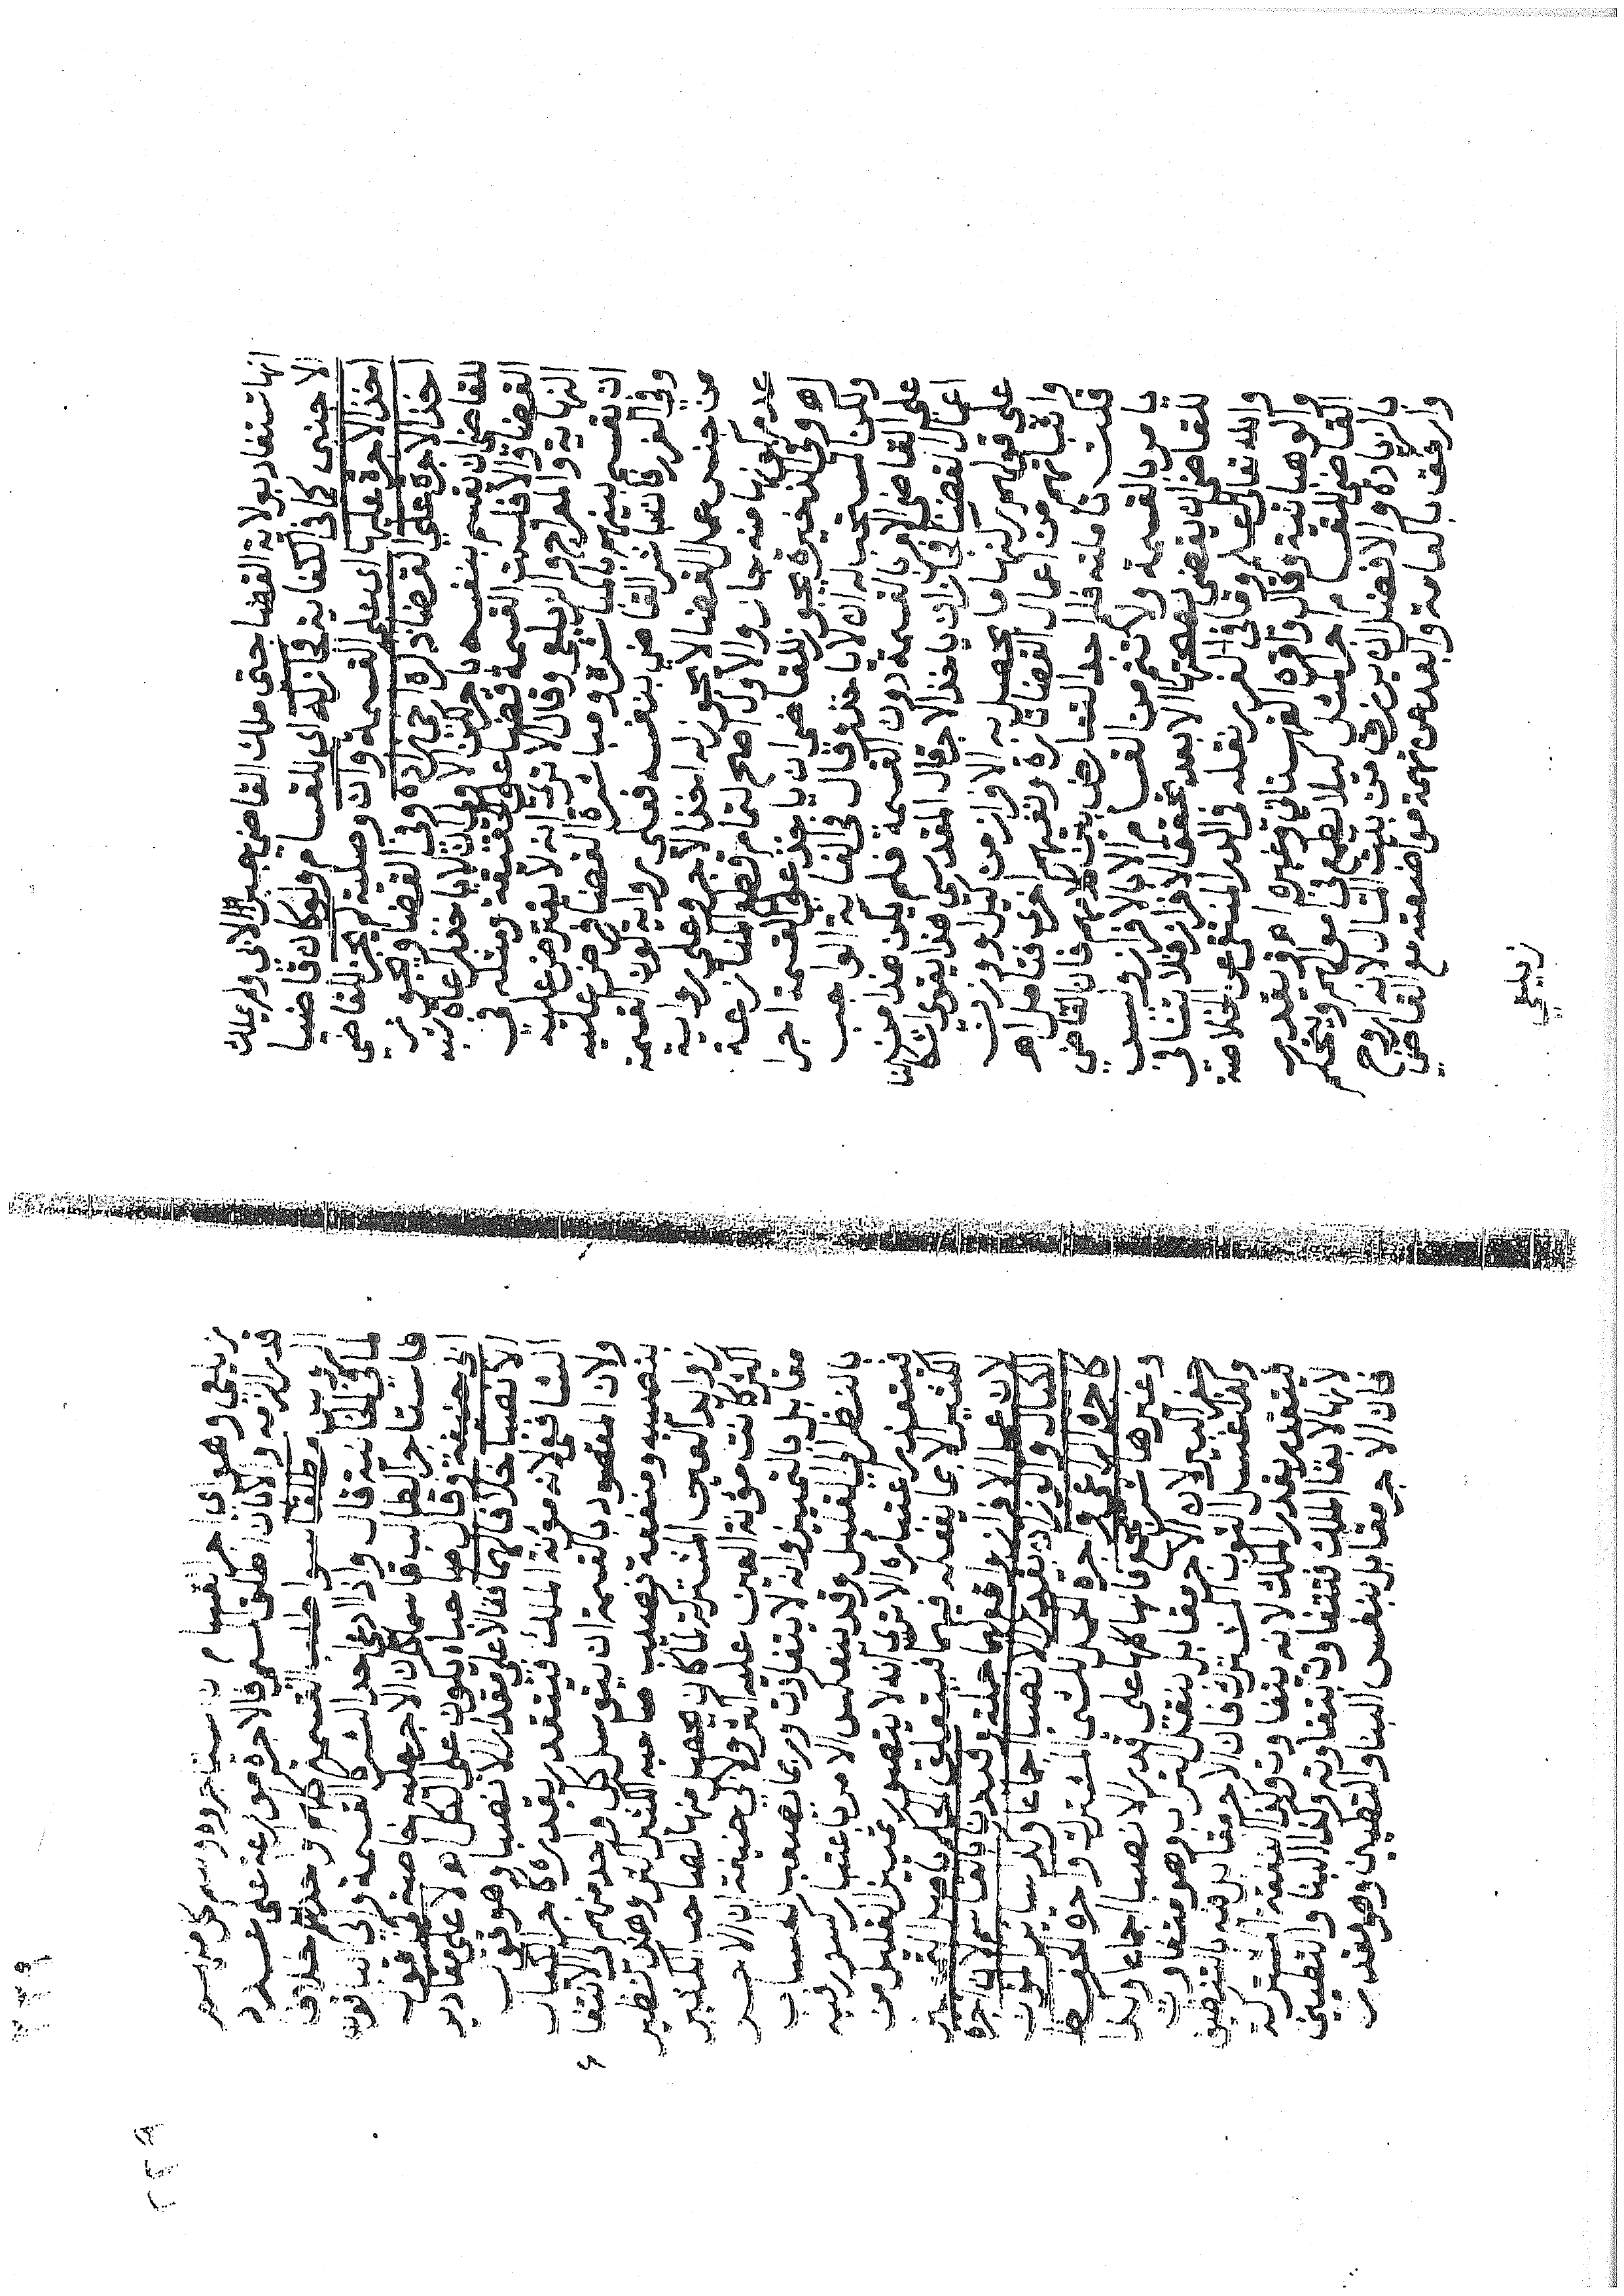 انها ستفاد بولاية القضا حتى ملك القاضي جبر الابي ولم يملك
الاجنبي كما في الكفاية فجاز له اي للقسام ولو كان قاضيا
اخذ الاجرة عليها اي على القسمة وان وصلية لم يجز للقاضي
اخذ الاجرة على القضا ذكره اخي زاده وفي القضا ويجوز
للقاضي ان يقسم بنفسه باجر لكن الاولى ان لا ياخذ
القضاة والا فليست القسمة قضا على الحقيقة ومثله في
النهاية والمعراج والزيلعي وقال الا ترى انه لا يفترض عليه
ان يقسم بينهم بالمباشرة ومباشرة القضا فرض عليه
وفي الغرر فان باشر القاضي بنفسه فعلى رواية كون القسمة
من جنس عمل القضا لا يجوز له اخذ الاجر وعلى رواية
عدم كونها منه جاز والاول اصح لتمام قطع المنازعة
اه وفي الذخيرة يجوز للقاضي ان ياخذ على القسمة اجرا
ولكن المستحب له ان لا ياخذ وقال في الغاية الواجب
على القاضي الامر بالقسمة دون القسمة فلم يكن هذا من
اعمال القضا فجاز ان ياخذ الاجر قال المقدسي هذا يقوي انكارنا
على قولهم لكنها ما يحصل به الافراز من كيل ووزن
واثباتهم من اعمال القضا تارة ونفيهم اخرى فتامل اه
قلت تاملته فلم اجد التعارض بين كلامهم فان القاضي
يامر بالقسمة ولا تتم من القسام الا بالافراز وليس
للقاضي ان يقضي بصحتها الا بعد تحقق الافراز فلا تنافي
والله تعالى اعلم وفي الغرر نقله في الدر المنتقى عن الخلاصة
والوهبانية وقال واقره القهستاني وغيره اه ويقدر
القاضي للقسام اجر المثل كيلا يطمع في اموالهم ويتحكم
بالزيادة والافضل ان يرزق من بيت المال لانه اروح
وارفق بالعامة وابعد عن تهمة مواضعته مع القاضي
زيلعي
زيلعي وهو اي اجر القسام ان استاجروه وسم كل منهم
قدرا لزمه والا كان اطلق اسمي فالاجرة موزعة على عدد
الرؤس مطلقا سوا طلب القسمة كلهم او احدهم خلافا
لما في الخانية قال واذا ادعى احد الشركا القسمة وابى الباقون
فاستاجر الطالب قاسما كان الاجر عليه خاصة في قول
ابي حنيفة وقال صاحباه يكون على الكل اه لا على مقادير
الانصبا خلافا لهما فقالا على قدر الانصبا وهو قول
الشافعي لانه مؤنة الملك فيتقدر بقدره كاجرة الكيال
ولان المقصود بالقسمة ان يتوصل كل واحد منهم الى الانتفا
بنصيبه ومنفعة نصيب صاحب الكثير اكثر وهذا نظير
زوايد العين المشتركة لما كان يحصل منها لصاحب الكثير
اكثر كانت مؤنة العين عليه اكثر ولابي حنيفة ان الاجر
مقابل بالتمييز وانه لا يتفاوت وربما يصعب الحساب
بالنظر الى القليل وقد ينعكس الامر باعتبار كسور فيه
فيتعذر اعتباره الا ترى انه لا يتصور تمييز القليل من
الكثير الا بما يفعله فيهما فيتعلق الحكم باصل التمييز
لان عمل الافراز واقع لهما جملة وقيد بالقاسم لان اجرة
الكيال والوزان بقدر الانصبا اجماعا وكذا ساير المون
كاجرة الراعي واجرة الحمل لشي المشترك واجرة الحفر
وغيرها شرح مجمع فانها كلها على قدر الانصبا اجماعا وكذا
حفر البير لان الاجر مقابل بنقل التراب وهو متفاوت
وكذا غسل الثوب المشترك فان الاجر مقابل فيه بالتنظيف
فيتقدر بقدر الملك لانه يتفاوت وكذا النفقة المشتركة
لانها لابقا الملك فتتفاوت بتفاوته وكذا البنا والتطيين
فان الاجر مقابل بنفس البنا والتطيين وهو بقدر